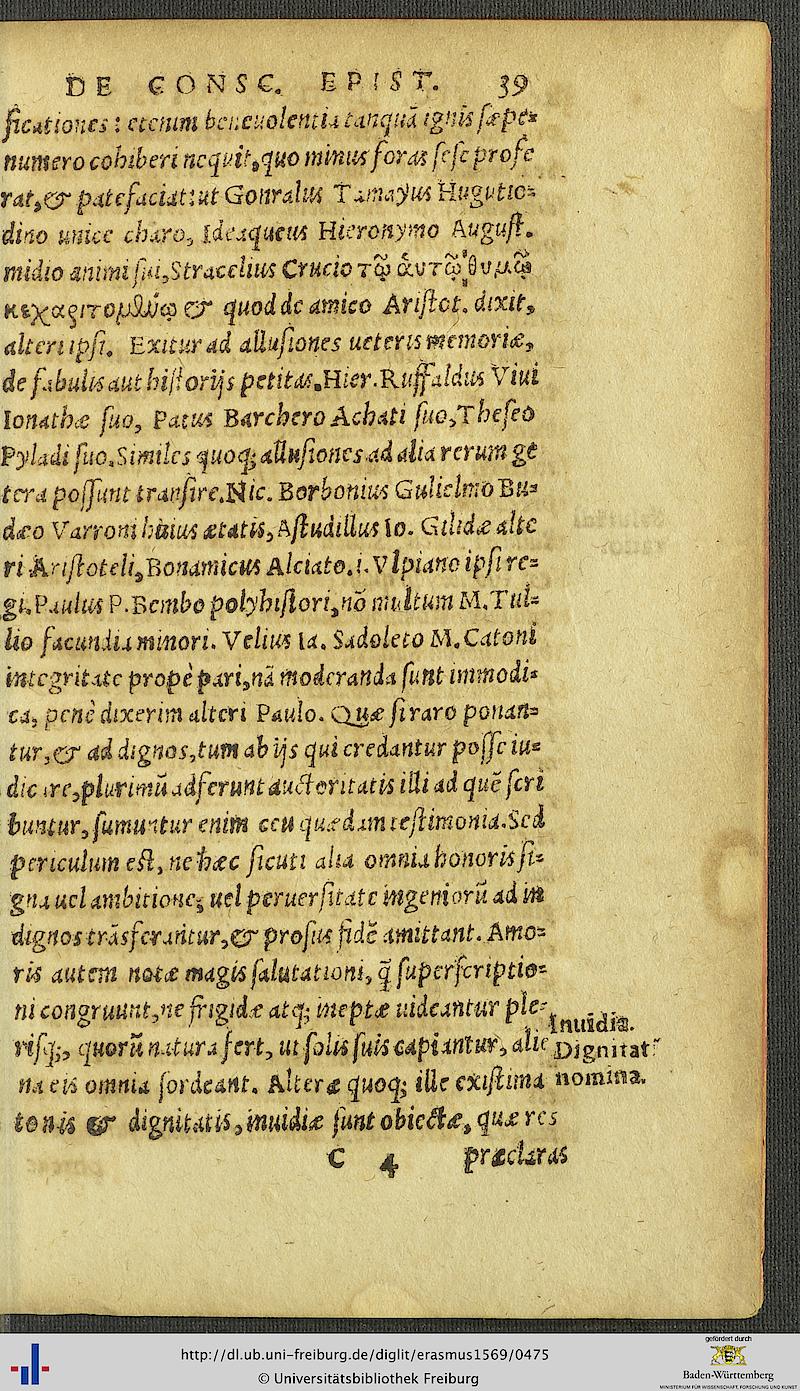 DE CONSC. EPIST. 39
ficationes: etenim beneuolentia tanquã ignis sæpe=
numero cohiberi nequit, quo minus foras sese profe
rat, & patefaciat: ut Gonralus Tamayus Hugutio=
dino unice charo, Ideaqueus Hieronymo August.
midio animi sui, Stracelius Crucio τῷ ἀυτῷ θυμῷ
& quod de amico Aristot. dixit,
alteri ipsi. Exitur ad allusiones ueteris memoriæ,
de fabulis aut historijs petitas. Hier. Ruffaldus Viui
Ionathæ suo, Patus Barchero Achati suo, Theseo
Pyladi suo. Similes quoq; allusiones ad alia rerum ge
tera possunt transire. Nic. Borbonius Gulielmo Bu=
dæo Varroni huius ætatis, Astudillus Io. Gilidæ alte
ri Aristoteli, Bonamicus Alciato .i. Vlpiano ipsi re=
gi. Paulus P. Bembo polyhistori, nõ multum M. Tul=
lio facundia minori. Velius Ia. Sadoleto M. Catoni
integritate propè pari, nã moderanda sunt immodi=
ca, penè dixerim alteri Paulo. Quæ si raro ponan=
tur, & ad dignos, tum ab ijs qui credantur posse iu=
dicare, plurimũ adferunt auctoritatis illi ad quẽ scri
buntur, sumuntur enim ceu quædam testimonia. Sed
periculum est, ne hæc sicuti alia omnia honoris si=
gna uel ambitione, uel peruersitate ingeniorũ ad in
dignos trãsferantur, & prosus fidẽ amittant. Amo=
ris autem notæ magis salutationi, q̃ superscriptio=
ni congruunt, ne frigidæ atq; ineptæ uideantur ple=
risq;, quorũ natura fert, ut solis suis capiantur, alie
na eis omnia sordeant. Alteræ quoq; ille existima
tonis & dignitatis, inuidiæ sunt obiectæ, quæ res
Inuidiæ.
Dignitat
nomina.
C 4 præclaras
http://dl.ub.uni-freiburg.de/diglit/erasmus1569/0475
© Universitätsbibliothek Freiburg
gefördert durch
Baden-Württemberg
MINISTERIUM FÜR WISSENSCHAFT, FORSCHUNG UND KUNST